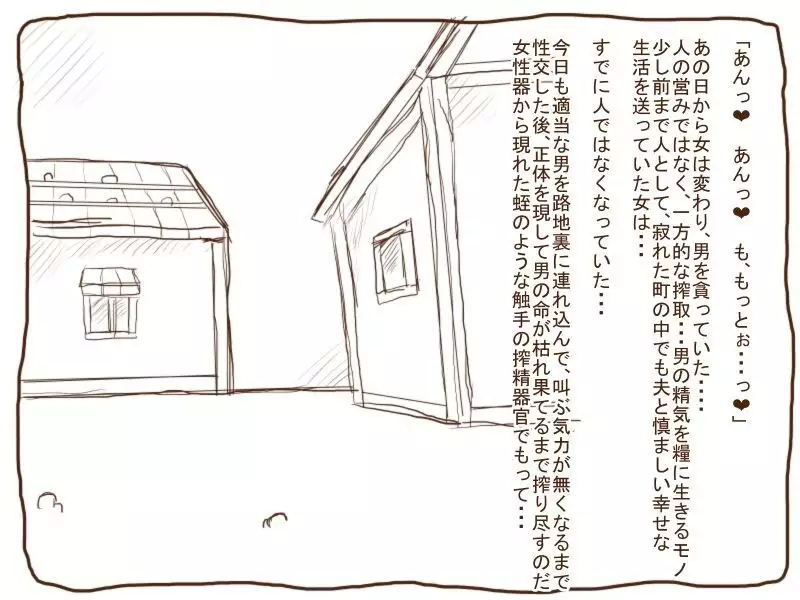 「あんっ❤ あんっ❤ も、もっとぉ…っ❤」
あの日から女は変わり、男を貪っていた‥‥
人の営みではなく、一方的な搾取…男の精気を糧に生きるモノ
少し前まで人として、寂れた町の中でも夫と慎ましい幸せな
生活を送っていた女は…
すでに人ではなくなっていた…
今日も適当な男を路地裏に連れ込んで、叫ぶ気力が無くなるまで
性交した後、正体を現して男の命が枯れ果てるまで搾り尽すのだ
女性器から現れた蛭のような触手の搾精器官でもって…